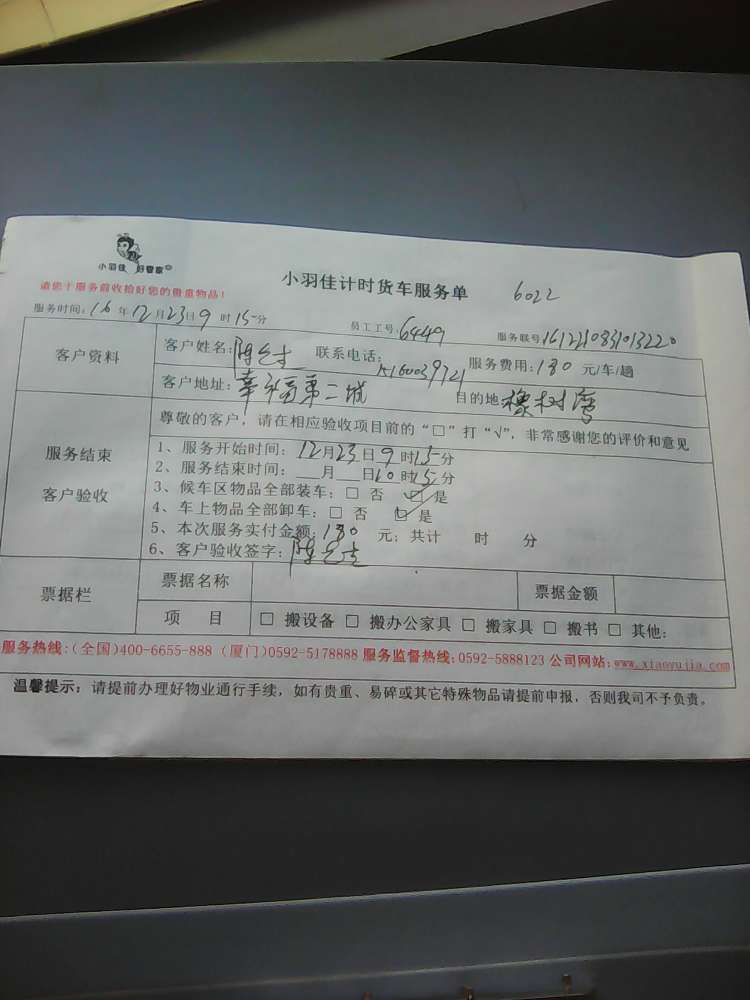 小羽佳 好管家
小羽佳计时货车服务单 6022
请您于服务前收拾好您的贵重物品！
服务时间：16年12月23日9时15分 员工工号：6449 服务联号：
客户资料
客户姓名： 联系电话： 服务费用：180元/车/趟
客户地址：幸福第二城 目的地 橡树湾
服务结束
客户验收
尊敬的客户，请在相应验收项目前的“□”打“√”，非常感谢您的评价和意见
1、服务开始时间：12月23日9时15分
2、服务结束时间：__月__日10时15分
3、候车区物品全部装车：□ 否 □ 是
4、车上物品全部卸车：□ 否 □ 是
5、本次服务实付金额：180 元；共计 时 分
6、客户验收签字：
票据栏
票据名称 票据金额
项 目 □ 搬设备 □ 搬办公家具 □ 搬家具 □ 搬书 □ 其他：
服务热线：(全国)400-6655-888 (厦门)0592-5178888 服务监督热线：0592-5888123 公司网站：www.xiaoyujia.com
温馨提示：请提前办理好物业通行手续，如有贵重、易碎或其它特殊物品请提前申报，否则我司不予负责。